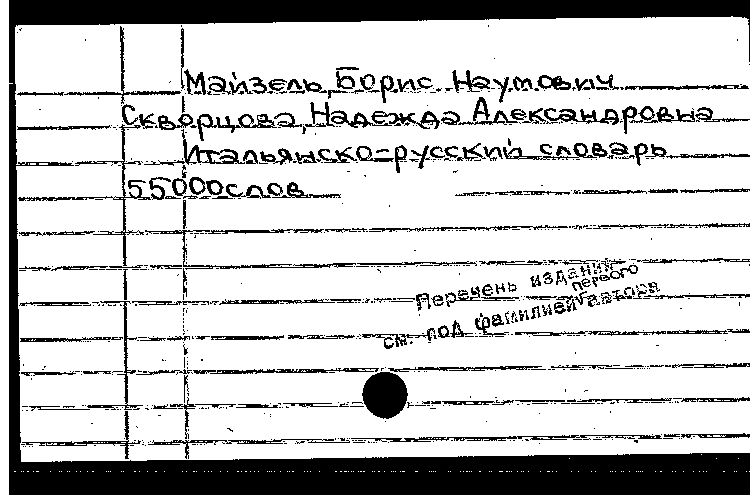 Майзель, Борис Наумович
Скворцова, Надежда Александровна
Итальянско-русский словарь
55000 слов
Перечень изданий
см. под фамилией первого автора